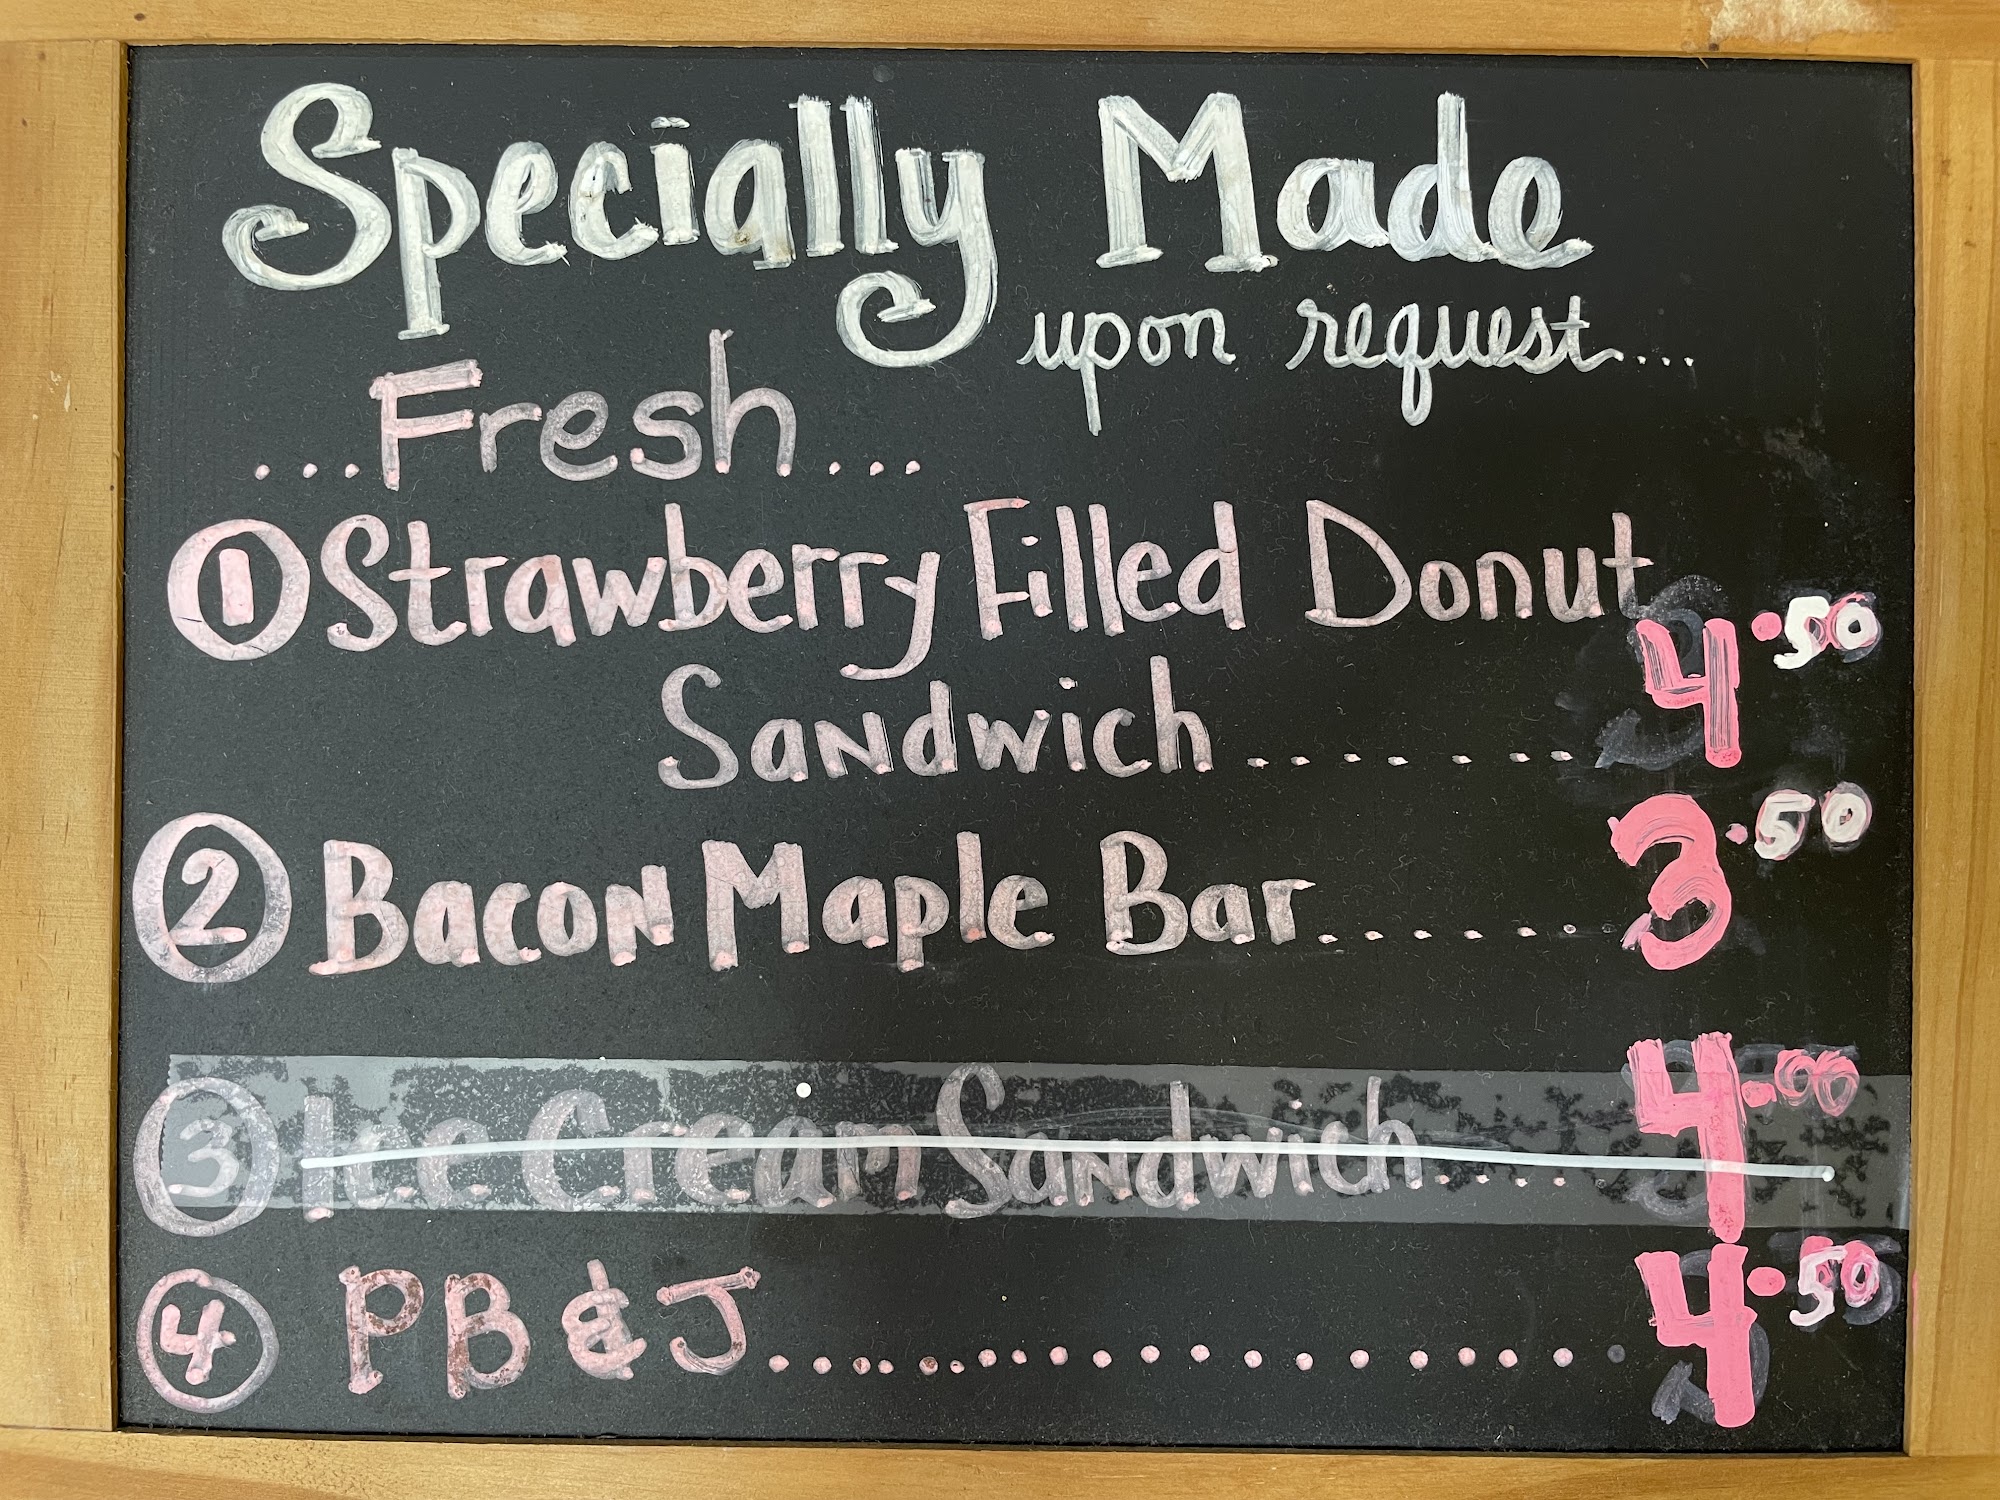 Specially Made
upon request....
...Fresh...
① Strawberry Filled Donut
Sandwich....... 4.50
② Bacon Maple Bar....... 3.50
③ Ice Cream Sandwich.... 4.00
④ PB & J.................. 4.50